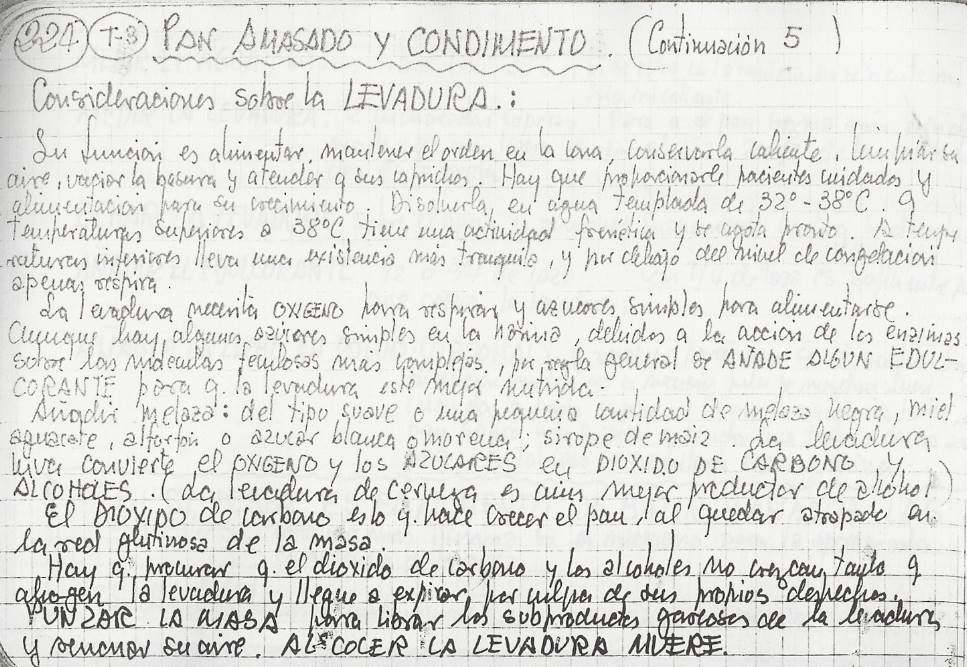 224 T-8 PAN AMASADO Y CONDIMENTO. (Continuación 5 )
Consideraciones sobre la LEVADURA.:
Su función es alimentar, mantener el orden en la zona, conservarla caliente, limpiar su
aire, vaciar la basura y atender a sus caprichos. Hay que proporcionarle pacientes cuidados y
alimentación para su crecimiento. Disolverla, en agua templada de 32° - 38°C. a
temperaturas superiores a 38°C tiene una actividad frenética y se agota pronto. A tempe
raturas inferiores lleva una existencia más tranquila, y por debajo del nivel de congelación
apenas respira.
La levadura necesita OXIGENO para respirar y azucares simples para alimentarse.
Aunque hay algunos azúcares simples en la harina, debidos a la acción de las enzimas
sobre las moleculas feculosas más complejas, por regla general se AÑADE ALGUN EDUL-
CORANTE para q. la levadura esté mejor nutrida.
Añadir melaza: del tipo suave o una pequeña cantidad de melaza negra, miel
aguacate, alforfon o azucar blanca o morena; sirope de maiz. La levadura
viva convierte el OXIGENO y los AZUCARES en DIOXIDO DE CARBONO y
ALCOHOLES. (La levadura de cerveza es aún mejor productor de alcohol)
El DIOXIDO de carbono es lo q. hace crecer el pan, al quedar atrapado en
la red glutinosa de la masa
Hay q. procurar q. el dioxido de carbono y los alcoholes no crezcan tanto q
ahoguen la levadura y llegue a expirar, por culpa de sus propios desechos.
PUNZAR LA MASA para librar los subproductos gaseosos de la levadura
y renovar su aire. AL COCER LA LEVADURA MUERE.